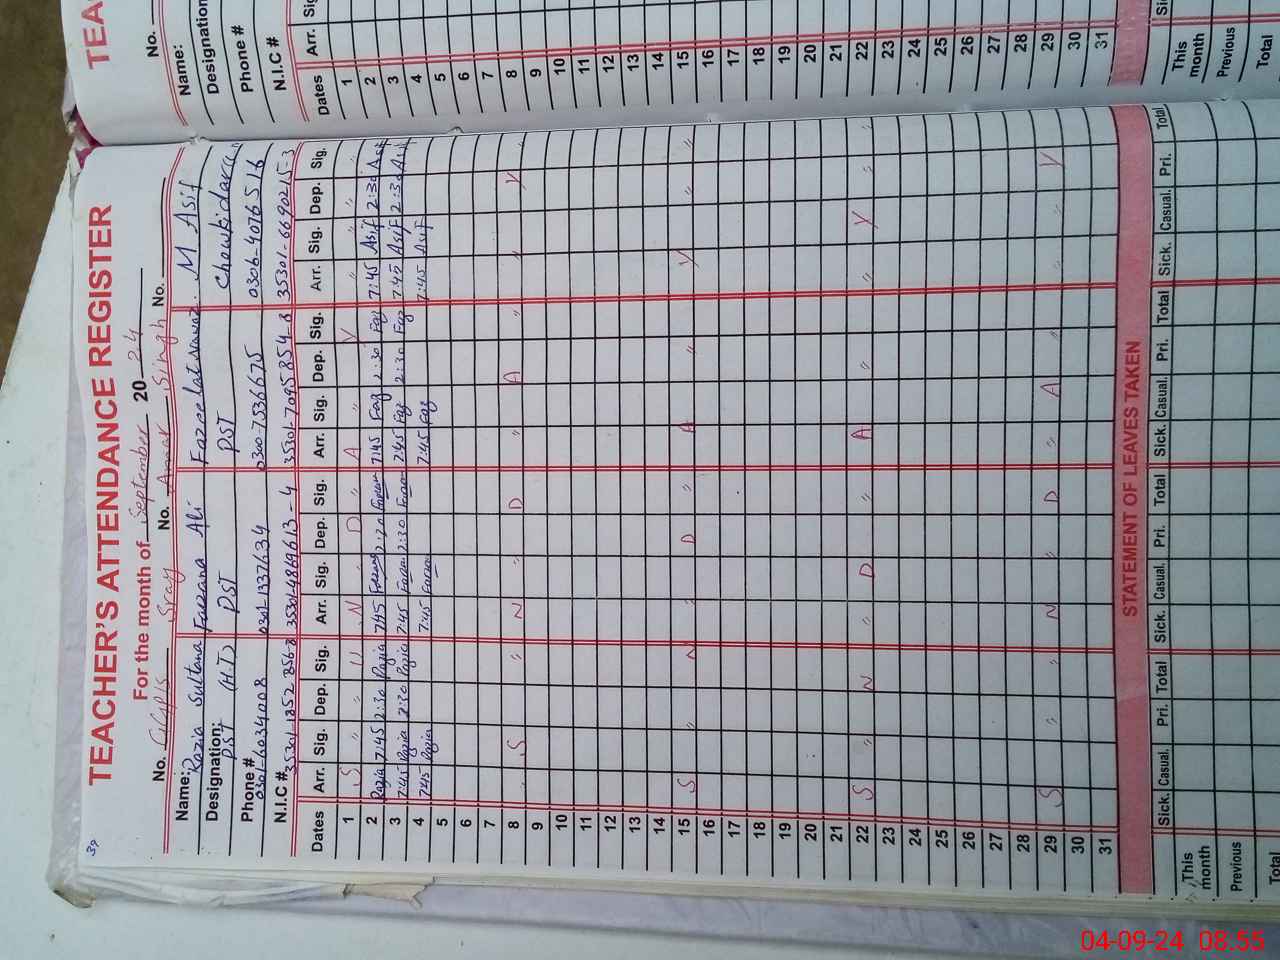 39
TEACHER'S ATTENDANCE REGISTER
For the month of September 2024
No. GGP/S Sray No. Amar Singh No.
Name: Razia Sultana Farzana Ali Fazeelat Nawaz M Asif
Designation: PST (H.T) PST PST Chowkidar
Phone # 0301-6034008 0301-1337634 0300-7536675 0306-4076516
N.I.C # 35301-1852856-8 35301-4869613-4 35301-7095854-8 35301-6690215-3
Dates Arr. Sig. Dep. Sig. Arr. Sig. Dep. Sig. Arr. Sig. Dep. Sig. Arr. Sig. Dep. Sig.
1 S " " U N " D " A " Y " " "
2 Razia 7:45 2:30 Razia 7:45 Farzan 2:30 Farzan 7:45 Faz 2:30 Faz 7:45 Asif 2:30 Asif
3 7:45 Razia 2:30 Razia 7:45 Farzan 2:30 Farzan 7:45 Faz 2:30 Faz 7:45 Asif 2:30 Asif
4 7:45 Razia 7:45 Farzan 7:45 Faz 7:45 Asif
5
6
7
8 S " N " D " A " " Y "
9
10
11
12
13
14
15 S " N " D " A " Y " "
16
17
18
19
20
21
22 S " N " D " A " " Y " "
23
24
25
26
27
28
29 S " " N " D " A " " " Y
30
31
STATEMENT OF LEAVES TAKEN
Sick. Casual. Pri. Total Sick. Casual. Pri. Total Sick. Casual. Pri. Total Sick. Casual. Pri. Total
This month
Previous
Total
TEA
No.
Name:
Designation
Phone #
N.I.C #
Dates Arr. Sig
1
2
3
4
5
6
7
8
9
10
11
12
13
14
15
16
17
18
19
20
21
22
23
24
25
26
27
28
29
30
31
Si
This month
Previous
Total
04-09-24 08.55